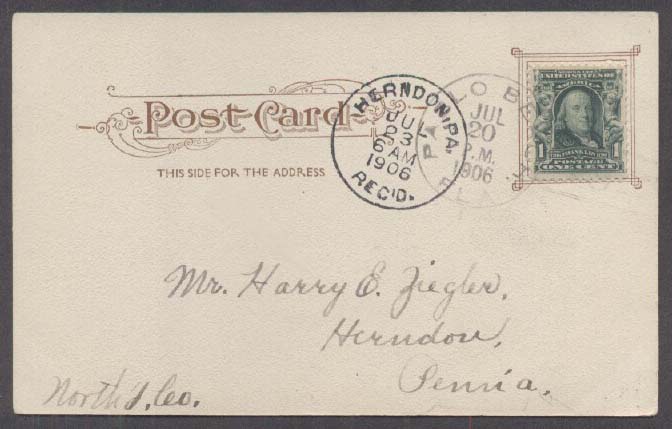 Post Card
THIS SIDE FOR THE ADDRESS
HERNDON, PA.
JUL
23
6 AM
1906
REC'D.
PA LO BE
JUL
20
P.M.
1906
UNITED STATES OF
AMERICA
1 1
POSTAGE
ONE CENT
Mr. Harry E. Ziegler,
Herndon,
Penn'a.
North'd. Co.